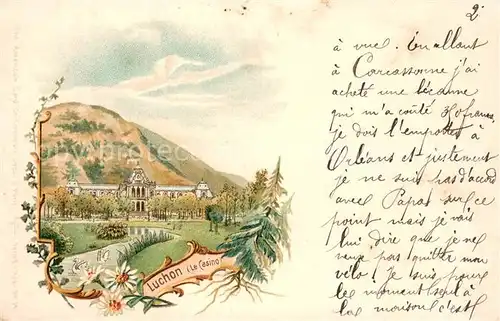 2.
à vue. En allant
à Carcassonne j'ai
acheté une bécanne
qui m'a coûté francs,
je dois l'emporter à
Orléans et justement
je ne suis pas d'accord
avec Papa sur ce
point mais je vais
lui dire que je ne
veux pas quitter mon
vélo! Je suis pour
le moment seul à
la maison c'est
Luchon (Le Casino)